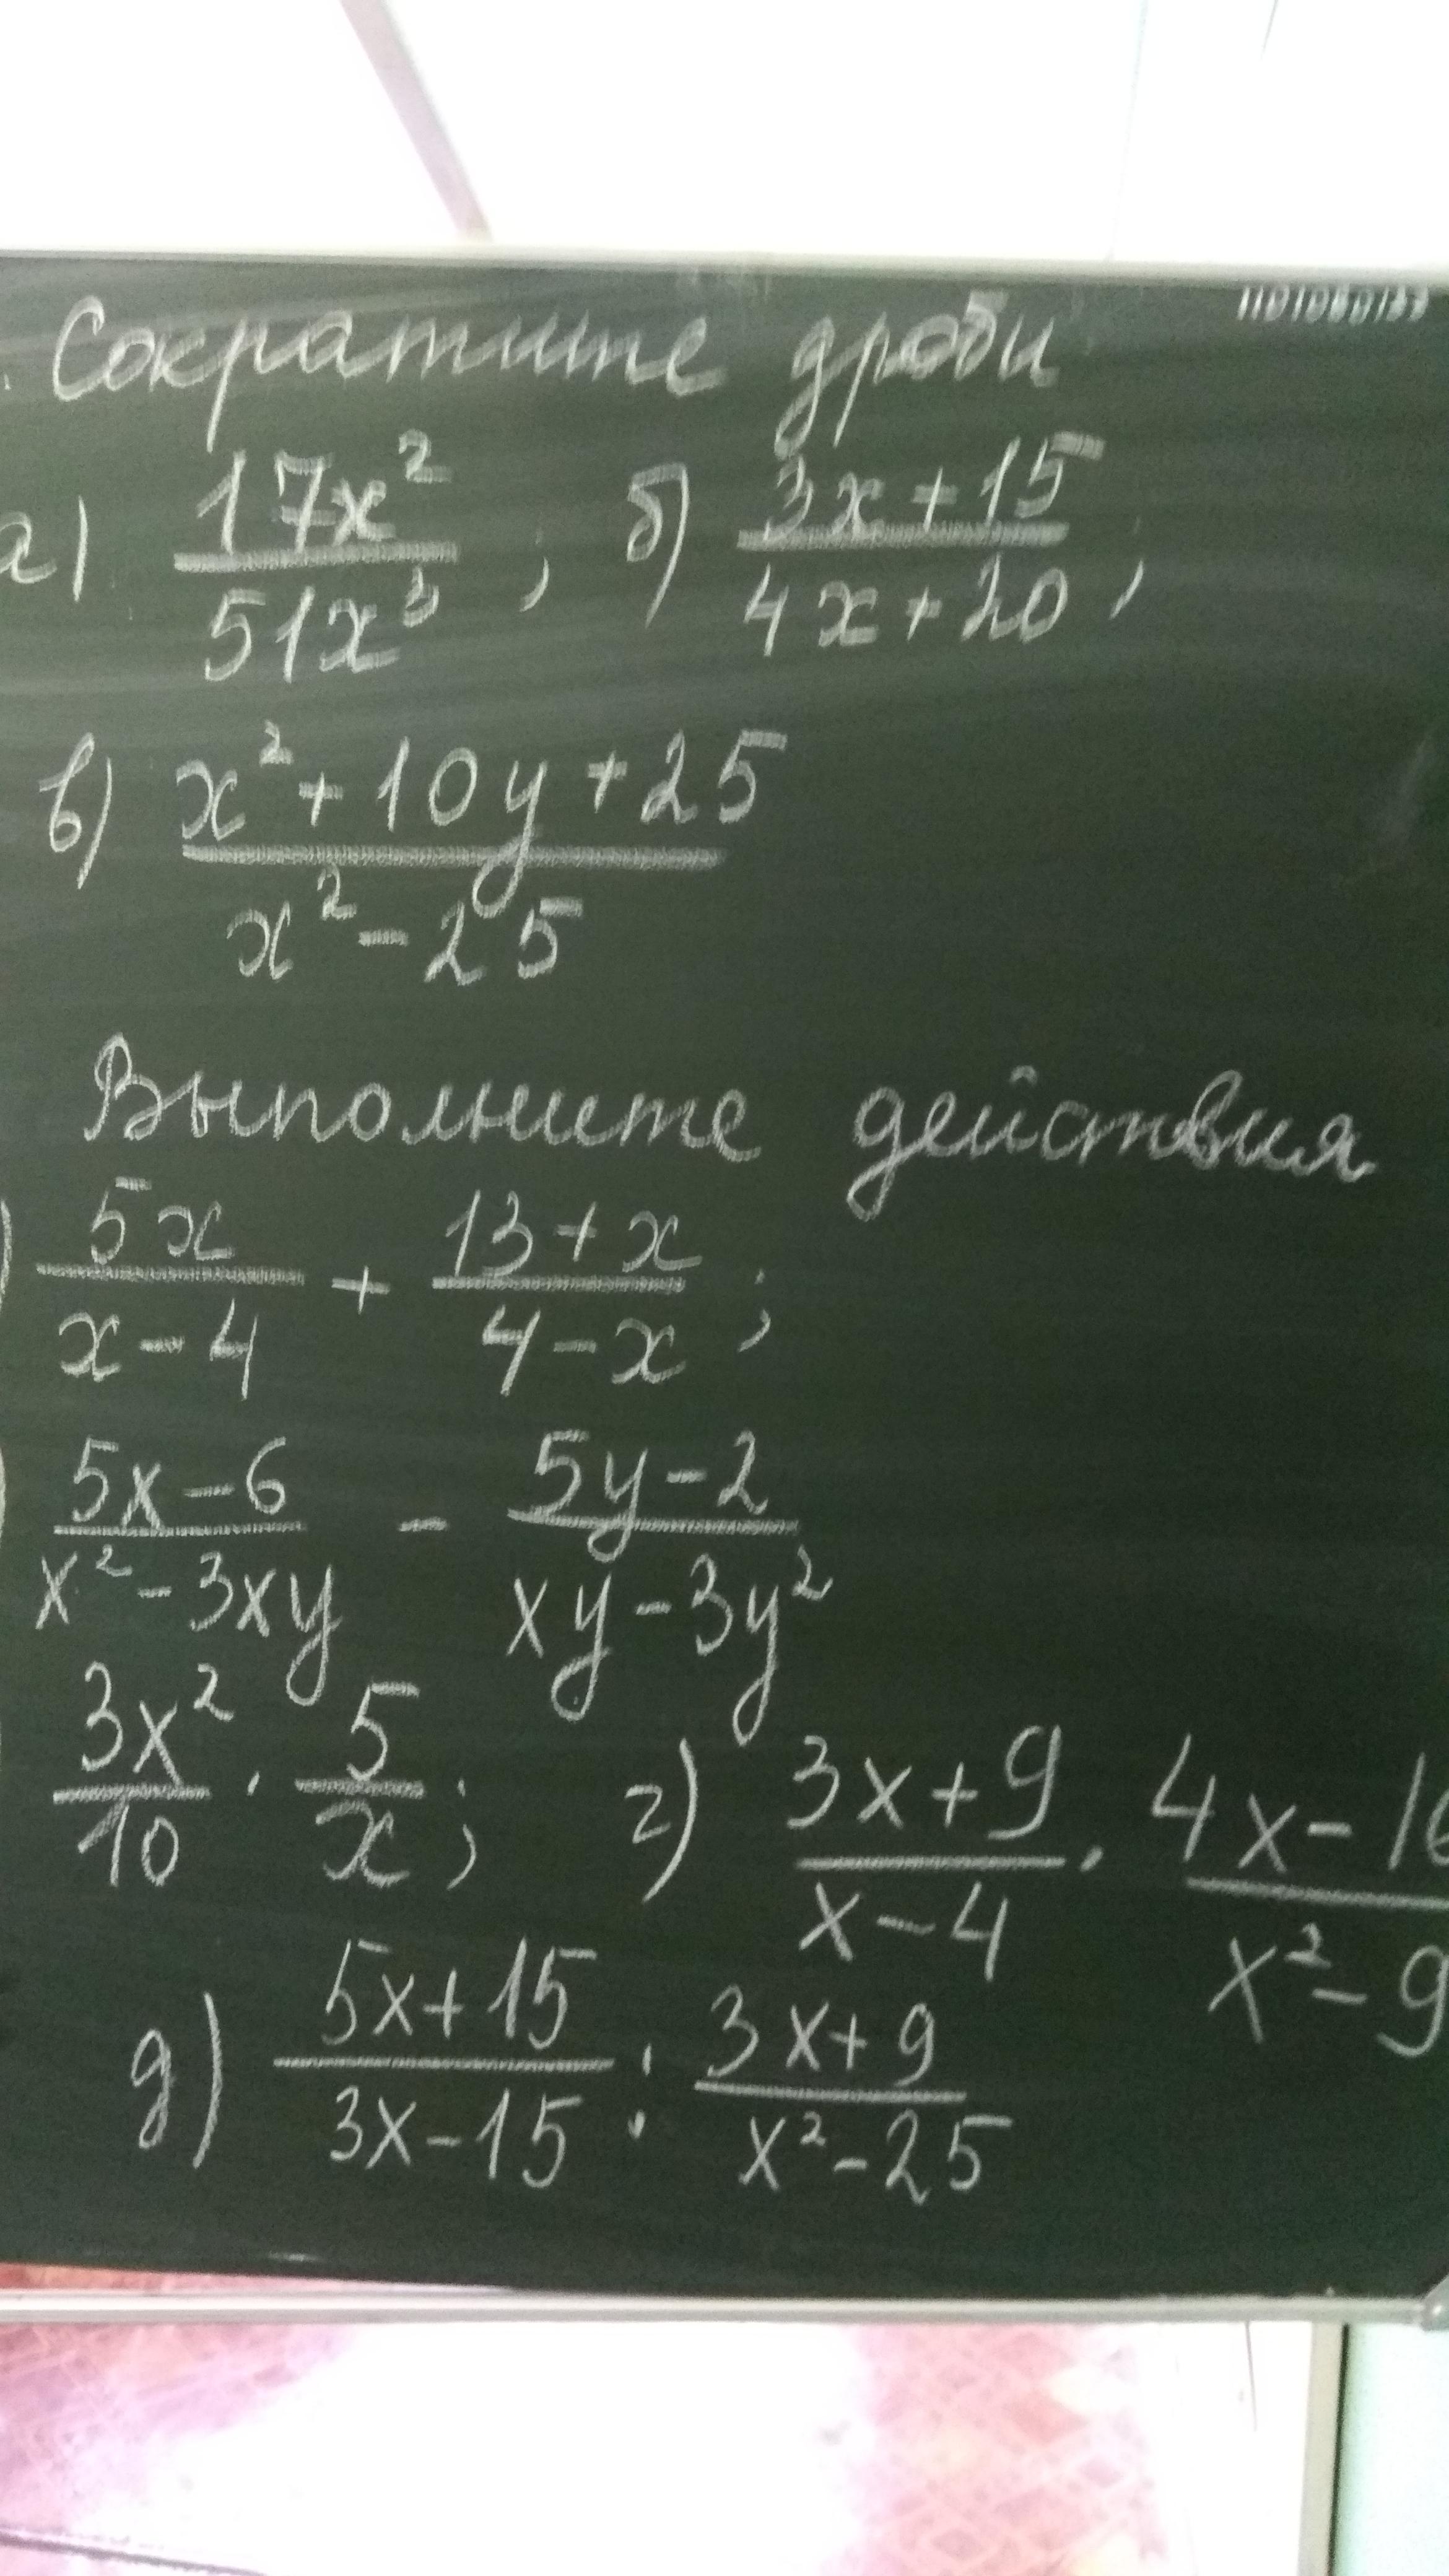 Сократите дроби
а) 17x²/51x³ ; б) 3x+15/4x+20 ;
в) x²+10y+25/x²-25
Выполните действия
) 5x/x-4 + 13+x/4-x ;
) 5x-6/x²-3xy - 5y-2/xy-3y²
3x²/10 · 5/x ; г) 3x+9/x-4 · 4x-16/x²-9
д) 5x+15/3x-15 : 3x+9/x²-25